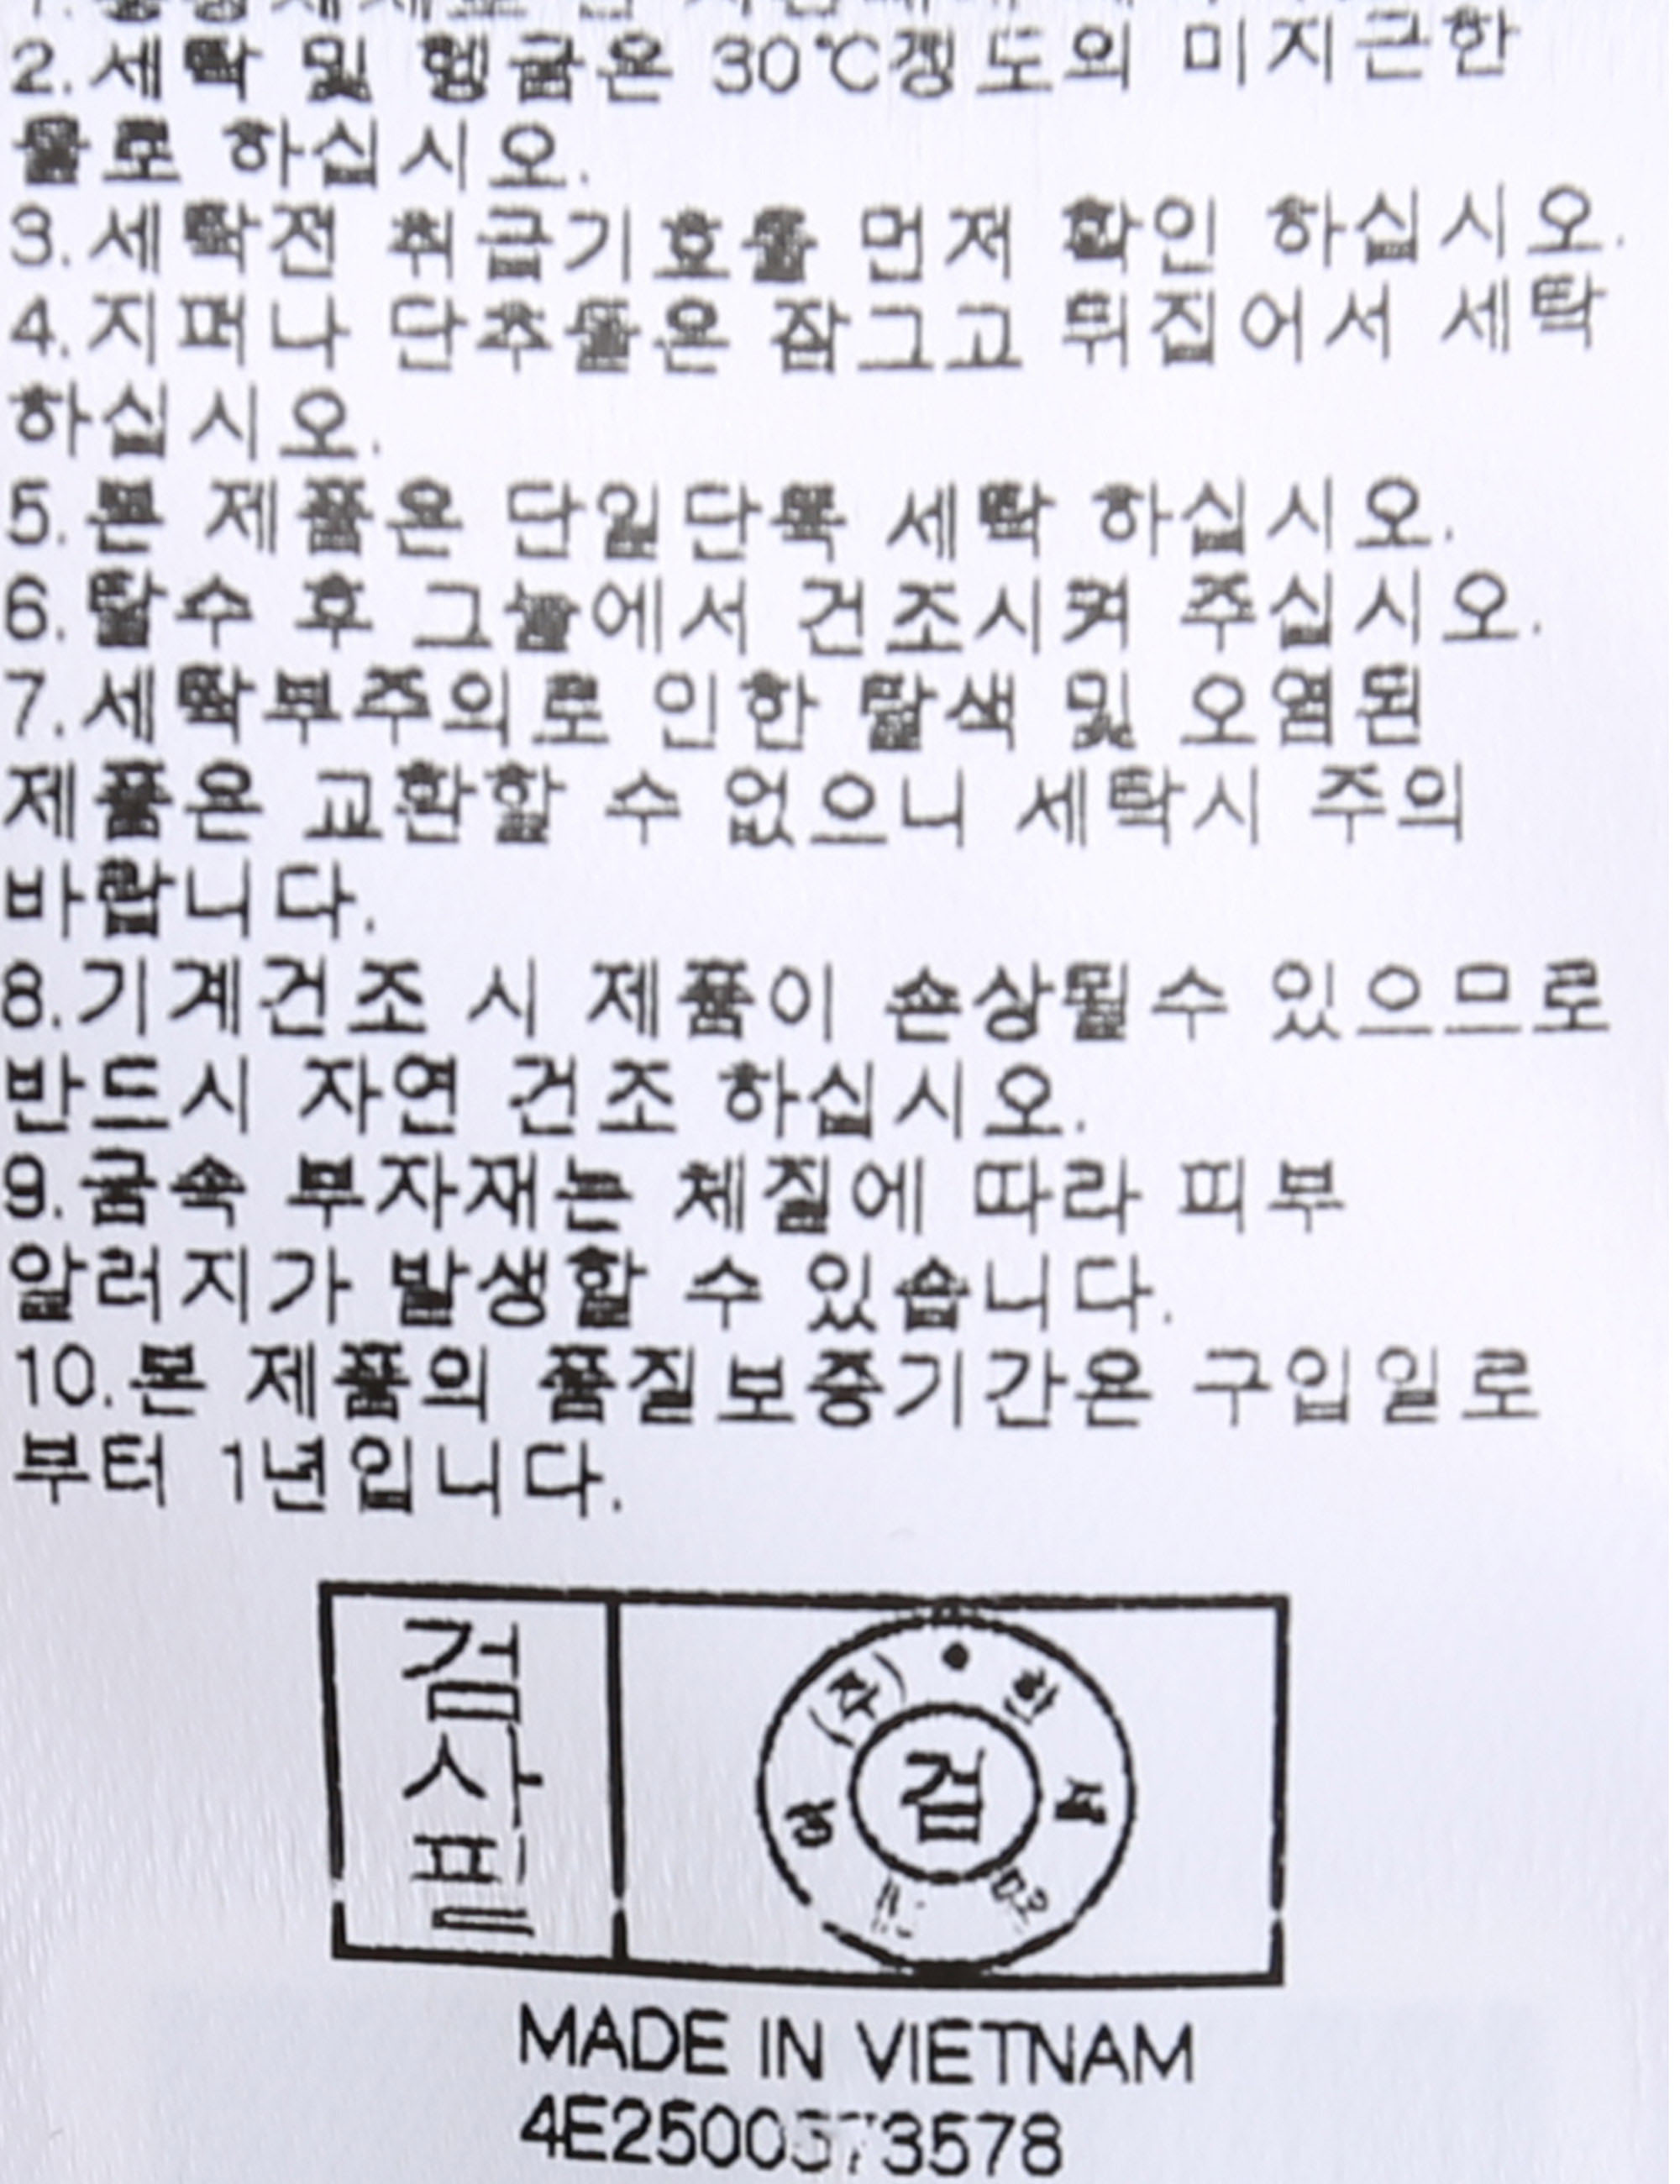 2.세탁 및 헹굼은 30℃정도의 미지근한
물로 하십시오.
3.세탁전 취급기호를 먼저 확인 하십시오.
4.지퍼나 단추들은 잠그고 뒤집어서 세탁
하십시오.
5.본 제품은 단일단독 세탁 하십시오.
6.탈수 후 그늘에서 건조시켜 주십시오.
7.세탁부주의로 인한 탈색 및 오염된
제품은 교환할 수 없으니 세탁시 주의
바랍니다.
8.기계건조 시 제품이 손상될수 있으므로
반드시 자연 건조 하십시오.
9.금속 부자재는 체질에 따라 피부
알러지가 발생할 수 있습니다.
10.본 제품의 품질보증기간은 구입일로
부터 1년입니다.
검사필
(주) 한세
검
MADE IN VIETNAM